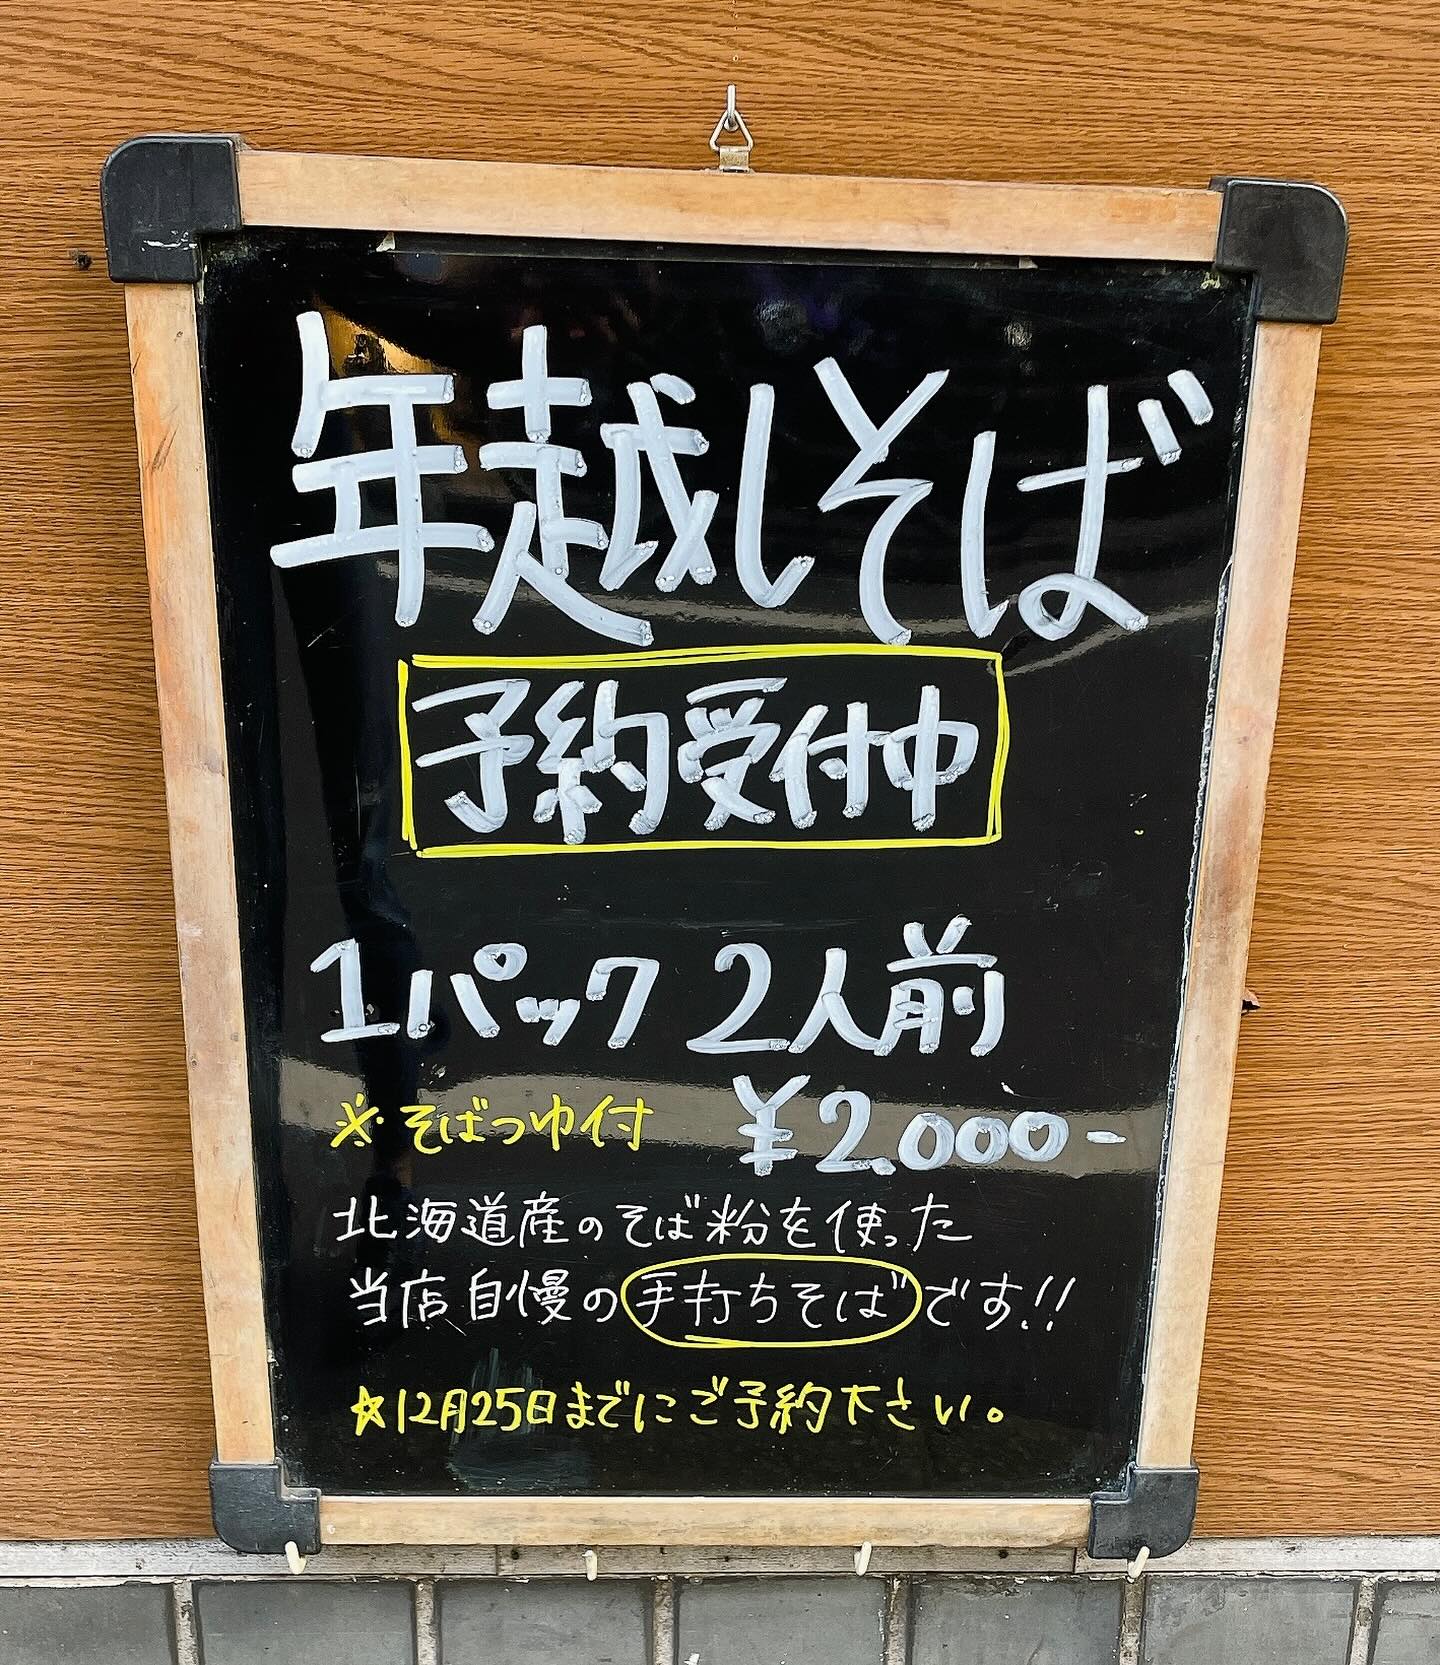 年越しそば
予約受付中
1パック 2人前
※そばつゆ付 ¥2.000-
北海道産のそば粉を使った
当店自慢の手打ちそばです!!
☆12月25日までにご予約下さい。